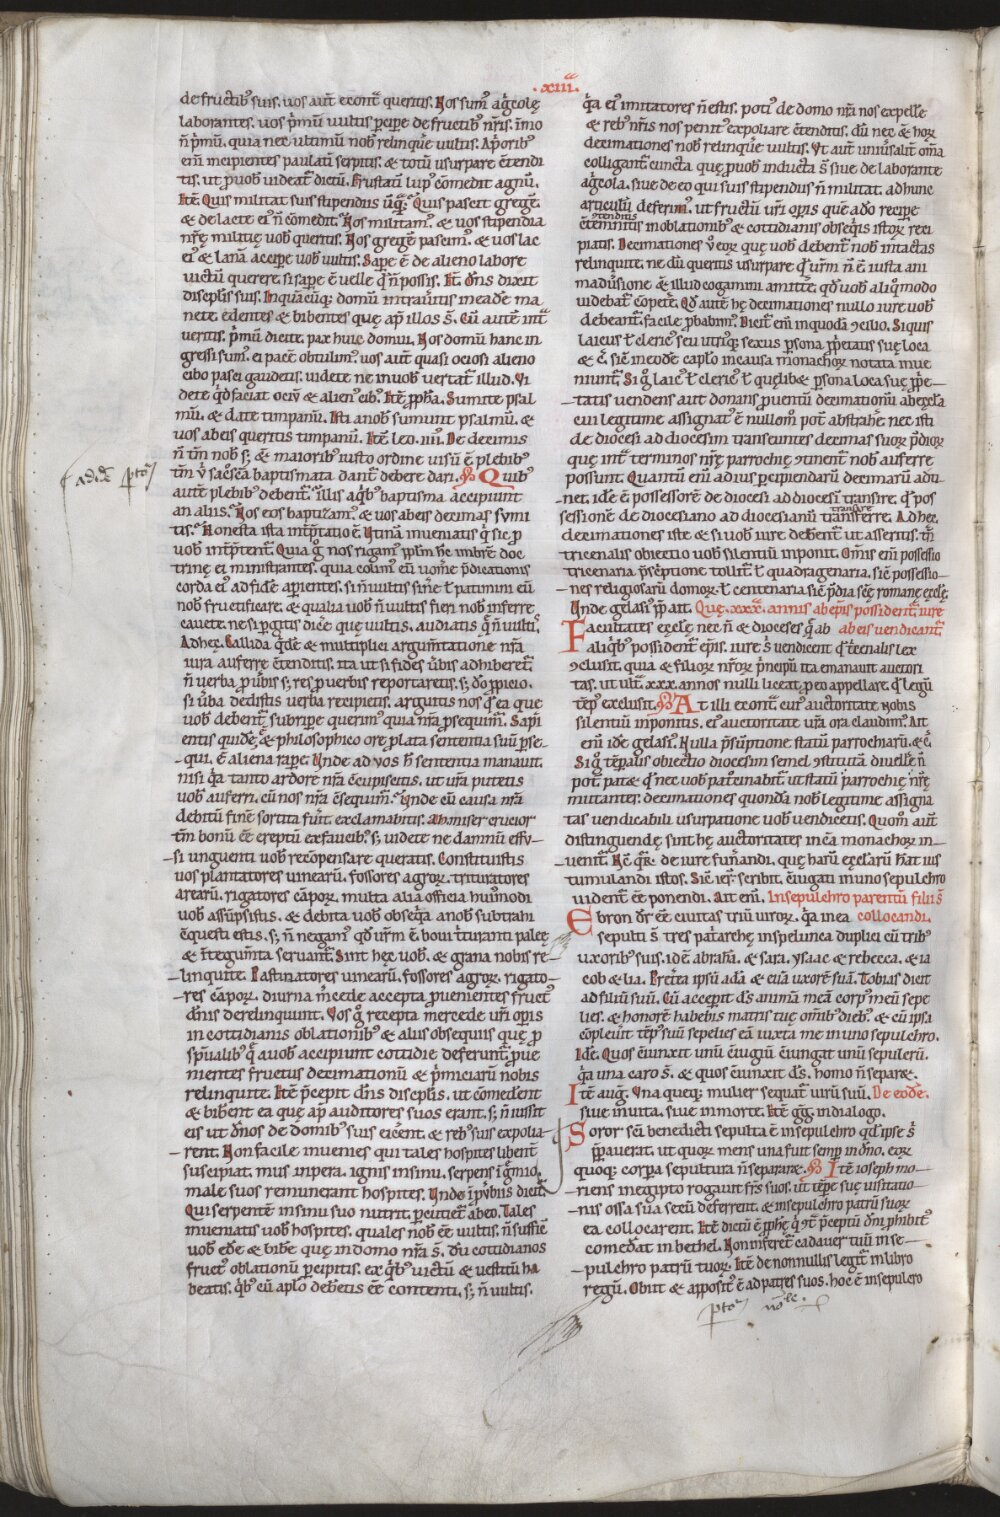 .xiii.
de fructib; suis. uos aut̄ econt̄ queritis. Nos sum᷒ ag̾colę
laborantes. uos p̾mū uultis p̱cip̱e de fructib; nr̄is. īmo
n̄ p̾mū. quia nec ultimū nob̄ relinq̱re uultis. Ap̾orib;
eni̅ incipientes paulati̅ serpitis. & totū usurpare ɔ̄tendi
tis. ut p̱ uob̄ uideat̄ dictū. Frustati̅ lup᷒ cōmedit agnū.
Itē. Quis militat suis stipendiis ūq̄; Quis pascit gregē.
& de lacte ei᷒ n̄ cōmedit. Nos militam᷒. & uos stipendia
nr̄ę militię uob̄ queritis. Nos gregē pascim᷒. & uos lac
ei᷒ & lanā accip̱e uob̄ uultis. Sap̱e ē de alieno labore
uictū querere. si sap̱e ē uelle q̄ n̄ possis. It̄. Dn̄s dixit
discip̱lis suis. In quacūq; domū intrau̾itis in eadē ma
nete. edentes & bibentes quę ap̄ illos s̄. Cū autē int̾
ueritis. p̾mū dicite. pax huic domui. Nos domū hanc in
gressi sum᷒. ei pacē obtulim᷒. uos aut̄ quasi ociosi alieno
cibo pasci gaudetis. uidete ne in uob̄ uertat̄ illud. Vi
dete q̄d faciat ociū & alien᷒ cib᷒. Itē pp̄ha. Sumite psal
mū. & date timpanū. Isti a nob̄ sumunt psalmū. &
uos ab eis queritis timpanū. Itē leo. iiii. De decimis
n̄ tm̄ nob̄ s; & maiorib; iusto ordine uisū ē plebib;
tm̄ u̾ sac̾osc̄a baptismata dant̄ debere dari. Quib;
autē plebib; debent̄. illis a q̾b; baptisma accipiunt
an aliis. Nos eos baptizam᷒. & uos ab eis decimas sum̄i
tis. Honesta ista int̾p̱tatio ē. Utinā inueniatis q̾ sic p̱
uob̄ int̾p̱tent̄. Quia g̾ nos rigam᷒ pp̱lm̄ h̄c imbrē doc
trinę ei ministrantes. quia colim᷒ eū uom̾e p̾dicationis
corda ei᷒ ad fidē ap̱ientes. si n̄ uultis sin̾e t̄ patimini eū
nob̄ fructificare. & qualia uob̄ n̄ uultis fieri nob̄ inferre
cauete. ne si p̱gitis dic̾e quę uultis. audiatis q̄ n̄ uultis.
Ad hęc. Callida q̾dē & multiplici argum̄tatione nr̄a
iura auferre ɔ̄tenditis. ita ut si fides ū̄bis adhiberet̄.
n̄ verba p̱ ū̄bis s; res p̱ verbis reportaretis. s; dō p̱picio.
si ū̄ba dedistis uerba recipietis. arguitis nos q̾ ea que
uob̄ debent̄. subrip̱e querim᷒ quia nr̄a p̱sequim᷒. Sapi
entis quidē & philosophico ore p̱lata sententia suū p̱se-
-qui. ē aliena rap̱e. Unde ad uos h̄ sententia manauit.
nisi q̾a tanto ardore nr̄a ɔ̄cupiscitis. ut ur̄a putetis
uob̄ auferri. cū nos nr̄a ɔ̄sequim᷒. Unde cū causa nr̄a
debitū finē sortita fu̾it. exclamabitis. Ah miser crucior
tm̄ bonū ēē ereptū ex faucib;. s; uidete ne damnū effu-
-si unguenti uob̄ recōpensare queratis. Constituistis
uos plantatores uinearū. fossores agroꝝ. trituratores
arearū. rigatores cāpoꝝ. multa alia officia hui᷒modi
uob̄ assūpsistis. & debita uob̄ obseq̾a a nob̄ subtrahi
ɔ̄questi estis. s; n̄ negam᷒ q̄d ur̄m ē. boui t̾turanti paleę
& t̄tegum̄ta seruant̄. Sint hęc uob̄. & grana nobis re-
-linquite. Pastinatores uinearū. fossores agroꝝ. rigato-
-res cāpoꝝ. diurna m̾cede accepta p̱uenientes fruct᷒
dn̄is derelinquunt. Vos g̾ recepta mercede ur̄i op̱is
in cottidianis oblationib; & aliis obsequiis quę p̱
sp̄ualib; q̾ a uob̄ accipiunt cottidie deferunt̄. p̱ue
nientes fructus decimationū & p̾miciarū nobis
relinquite. Itē p̾cepit dn̄s discip̱lis. ut cōmederent
& biberent ea que ap̄ auditores suos erant. s; n̄ iussit
eis ut dn̄os de domib; suis eic̾ent. & reb; suis expolia-
-rent. Non facile inuenies qui tales hospites libent̄
suscipiat. mus in pera. ignis in sinu. serpens ī g̾mio.
male suos remunerant hospites. Unde ī p̱ūbiis dicit̄.
Qui serpentē in sinu suo nutrit. p̱cutiet̄ ab eo. Tales
inueniatis uob̄ hospites. quales nob̄ ēē uultis. n̄ suffic̄
uob̄ ed̾e & bib̾e quę in domo nr̄a s̄. dū cottidianos
fruct᷒ oblationū p̱cipitis. ex q̾b; uictū & uestitū ha
beatis. q̾b; cū ap̱lo deb̾etis ēē contenti. s; n̄ uultis.
q̾a ei᷒ imitatores n̄ estis. poti᷒ de domo nr̄a nos expelle̾
& reb; nr̄is nos penit᷒ expoliare ɔ̄tenditis. dū nec & hoꝝ
decimationes nob̄ relinq̾re uultis. Vt aut̄ uniu̾salit̄ om̄ia
colligant̄ cuncta quę p̱ uob̄ inducta s̄ siue de laborante
ag̾cola. siue de eo qui suis stipendiis n̄ militat. ad hunc
articulū deferim᷒. ut fructū ur̄i op̱is quē a dō recip̱e
ɔ̄tenditis
ɔ̄temnitis in oblationib; & cottidianis obseq̾is istoꝝ reci
piatis. Decimationes u̾ eoꝝ quę uob̄ debent̄ nob̄ intactas
relinquite. ne dū queritis usurpare q̄ ur̄m n̄ ē iusta ani
madu̾sione & illud cogamini amitt̾e. q̄d uob̄ aliq̾modo
uidebat̄ cōpet̾e. Q̄d autē hę decimationes nullo iure uob̄
debeant̄. facile p̱babim᷒. Dicit̄ eni̅ in quodā ɔcilio. Si quis
laicus t̄ cleric᷒ seu utriq; sexus p̱sona p̱p̾etatis suę loca
& c̄. sic̄ in eodē cap̱lo in causa monachoꝝ notata inue
niunt̄. Si g̾ laic᷒ t̄ cleric᷒ t̄ quęlib& p̱sona loca suę p̱p̾e-
-tatis vendens aut donans p̱uentū decimationū ab ecc̄la
cui legitime assignat᷒ ē nullom᷒ pot̄ abstrah̾e. nec isti
de diocesi ad diocesim transeuntes decimas suoꝝ p̾dioꝝ
quę int̾ terminos nr̄ę parrochię ɔtinent̄ nob̄ auferre
possunt. Quantū eni̅ ad ius p̱cipiendarū decimarū adti-
-net. idē ē possessorē de diocesi ad diocesi̅ transire. q̄ pos
sessionē de diocesiano ad diocesianū transferre. Ad hęc.
transire
decimationes iste & si uob̄ iure deberent̄ ut asseritis. tm̄
tricenalis obiectio uob̄ silentiū inponit. Om̄is eni̅ possessio
tricenaria p̾sc̾ptione tollit̄. t̄ quadragenaria. sic̄ possessio-
-nes religiosarū domoꝝ. t̄ centenaria sic̄ p̾dia sc̄ę romanę ecc̄lę.
Unde gelasi᷒ pp̄ ait. Quę .xxx. annis ab ep̄is possident̄ iure
ab eis uendicant̄
Facultates ecc̄lę nec n̄ & dioceses q̾ ab
aliq̾b; possident̄ ep̄is. iure s̄ uendicent q̄ t̾cenalis lex
ɔclusit. quia & filioꝝ nr̄oꝝ p̾ncipū ita emanauit auctori
tas. ut ult̄ .xxx. annos nulli liceat p̱ eo appellare. q̄ legū
tēp᷒ exclusit. At illi econt̄ cui᷒ auctoritate nobis
silentiū inponitis. ei᷒ auctoritate ur̄a ora claudim᷒. Ait
eni̅ idē gelasi᷒. Nulla p̾sūptione statū parrochiarū. & c̄.
Si g̾ tēp̱alis obiectio diocesim semel ɔstitutā diuelle̾ n̄
pot̄. pat& q̄ nec uob̄ pat̾cinabit̄ ut statū parrochię nr̄ę
mutantes. decimationes quondā nob̄ legitime assigna
tas uendicabili usurpatione uob̄ uendicetis. Quom᷒ aut̄
distinguendę sint hę auctoritates in cā monachoꝝ in-
-uenit̄. Nc̄ q̾r de iure fun̾andi. quę harū ecc̄larū h̄at ius
tumulandi istos. Sic̄ ier᷒. scribit. ɔ̄iugati in uno sepulchro
uident̄ ēē ponendi. Ait eni̅. In sepulchro parentū filii s̄
collocandi.
Ebron dr̄ ēē ciuitas triū uiroꝝ. q̾a in ea
sepulti s̄ tres pat̾archę in spelunca duplici cū trib;
uxorib; suis. id ē abrahā. & sara. ysaac & rebecca. & ia
cob & lia. Pret̾ea ipsū adā & euā uxorē suā. Tobias dicit
ad filiū suū. Cū accep̱it ds̄ animā meā corp᷒ meū sepe
lies. & honorē habebis matris tuę om̄ib; dieb;. & cū ipsa
cōpleu̾it tēp᷒ suū sepelies eā iuxta me in uno sepulchro.
Idē. Quos ɔ̄iunxit unū ɔ̄iugiū ɔ̄iungat unū sepulcrū.
q̾a una caro s̄. & quos ɔ̄iunxit ds̄. homo n̄ separ&.
Itē aug᷒. Una queq; mulier sequat̄ uirū suū. De eodē.
siue in uita. siue in morte. Itē gg᷒. in dialogo.
Soror sc̄i benedicti sepulta ē in sepulchro q̄d ipse s̄
p̱pauerat. ut quoꝝ mens una fuit semp̱ in dn̄o. eoꝝ
quoq; corp̱a sepultura n̄ separar&. Itē ioseph mo-
-riens in egipto rogauit frs̄ suos. ut tēp̱e suę uisitatio-
-nis ossa sua secū deferrent. & in sepulchro patrū suoꝝ
ea collocarent. Itē dictū ē pp̄hę q̾ ɔt̾ p̾ceptū dn̄i p̱hibit᷒
comed̾at in bethel. Non inferet̄ cadauer tuū in se-
-pulchro patrū tuoꝝ. Itē de nonnullis legit̄ in libro
regū. Obiit & apposit᷒ ē ad patres suos. hoc ē in sepulcro